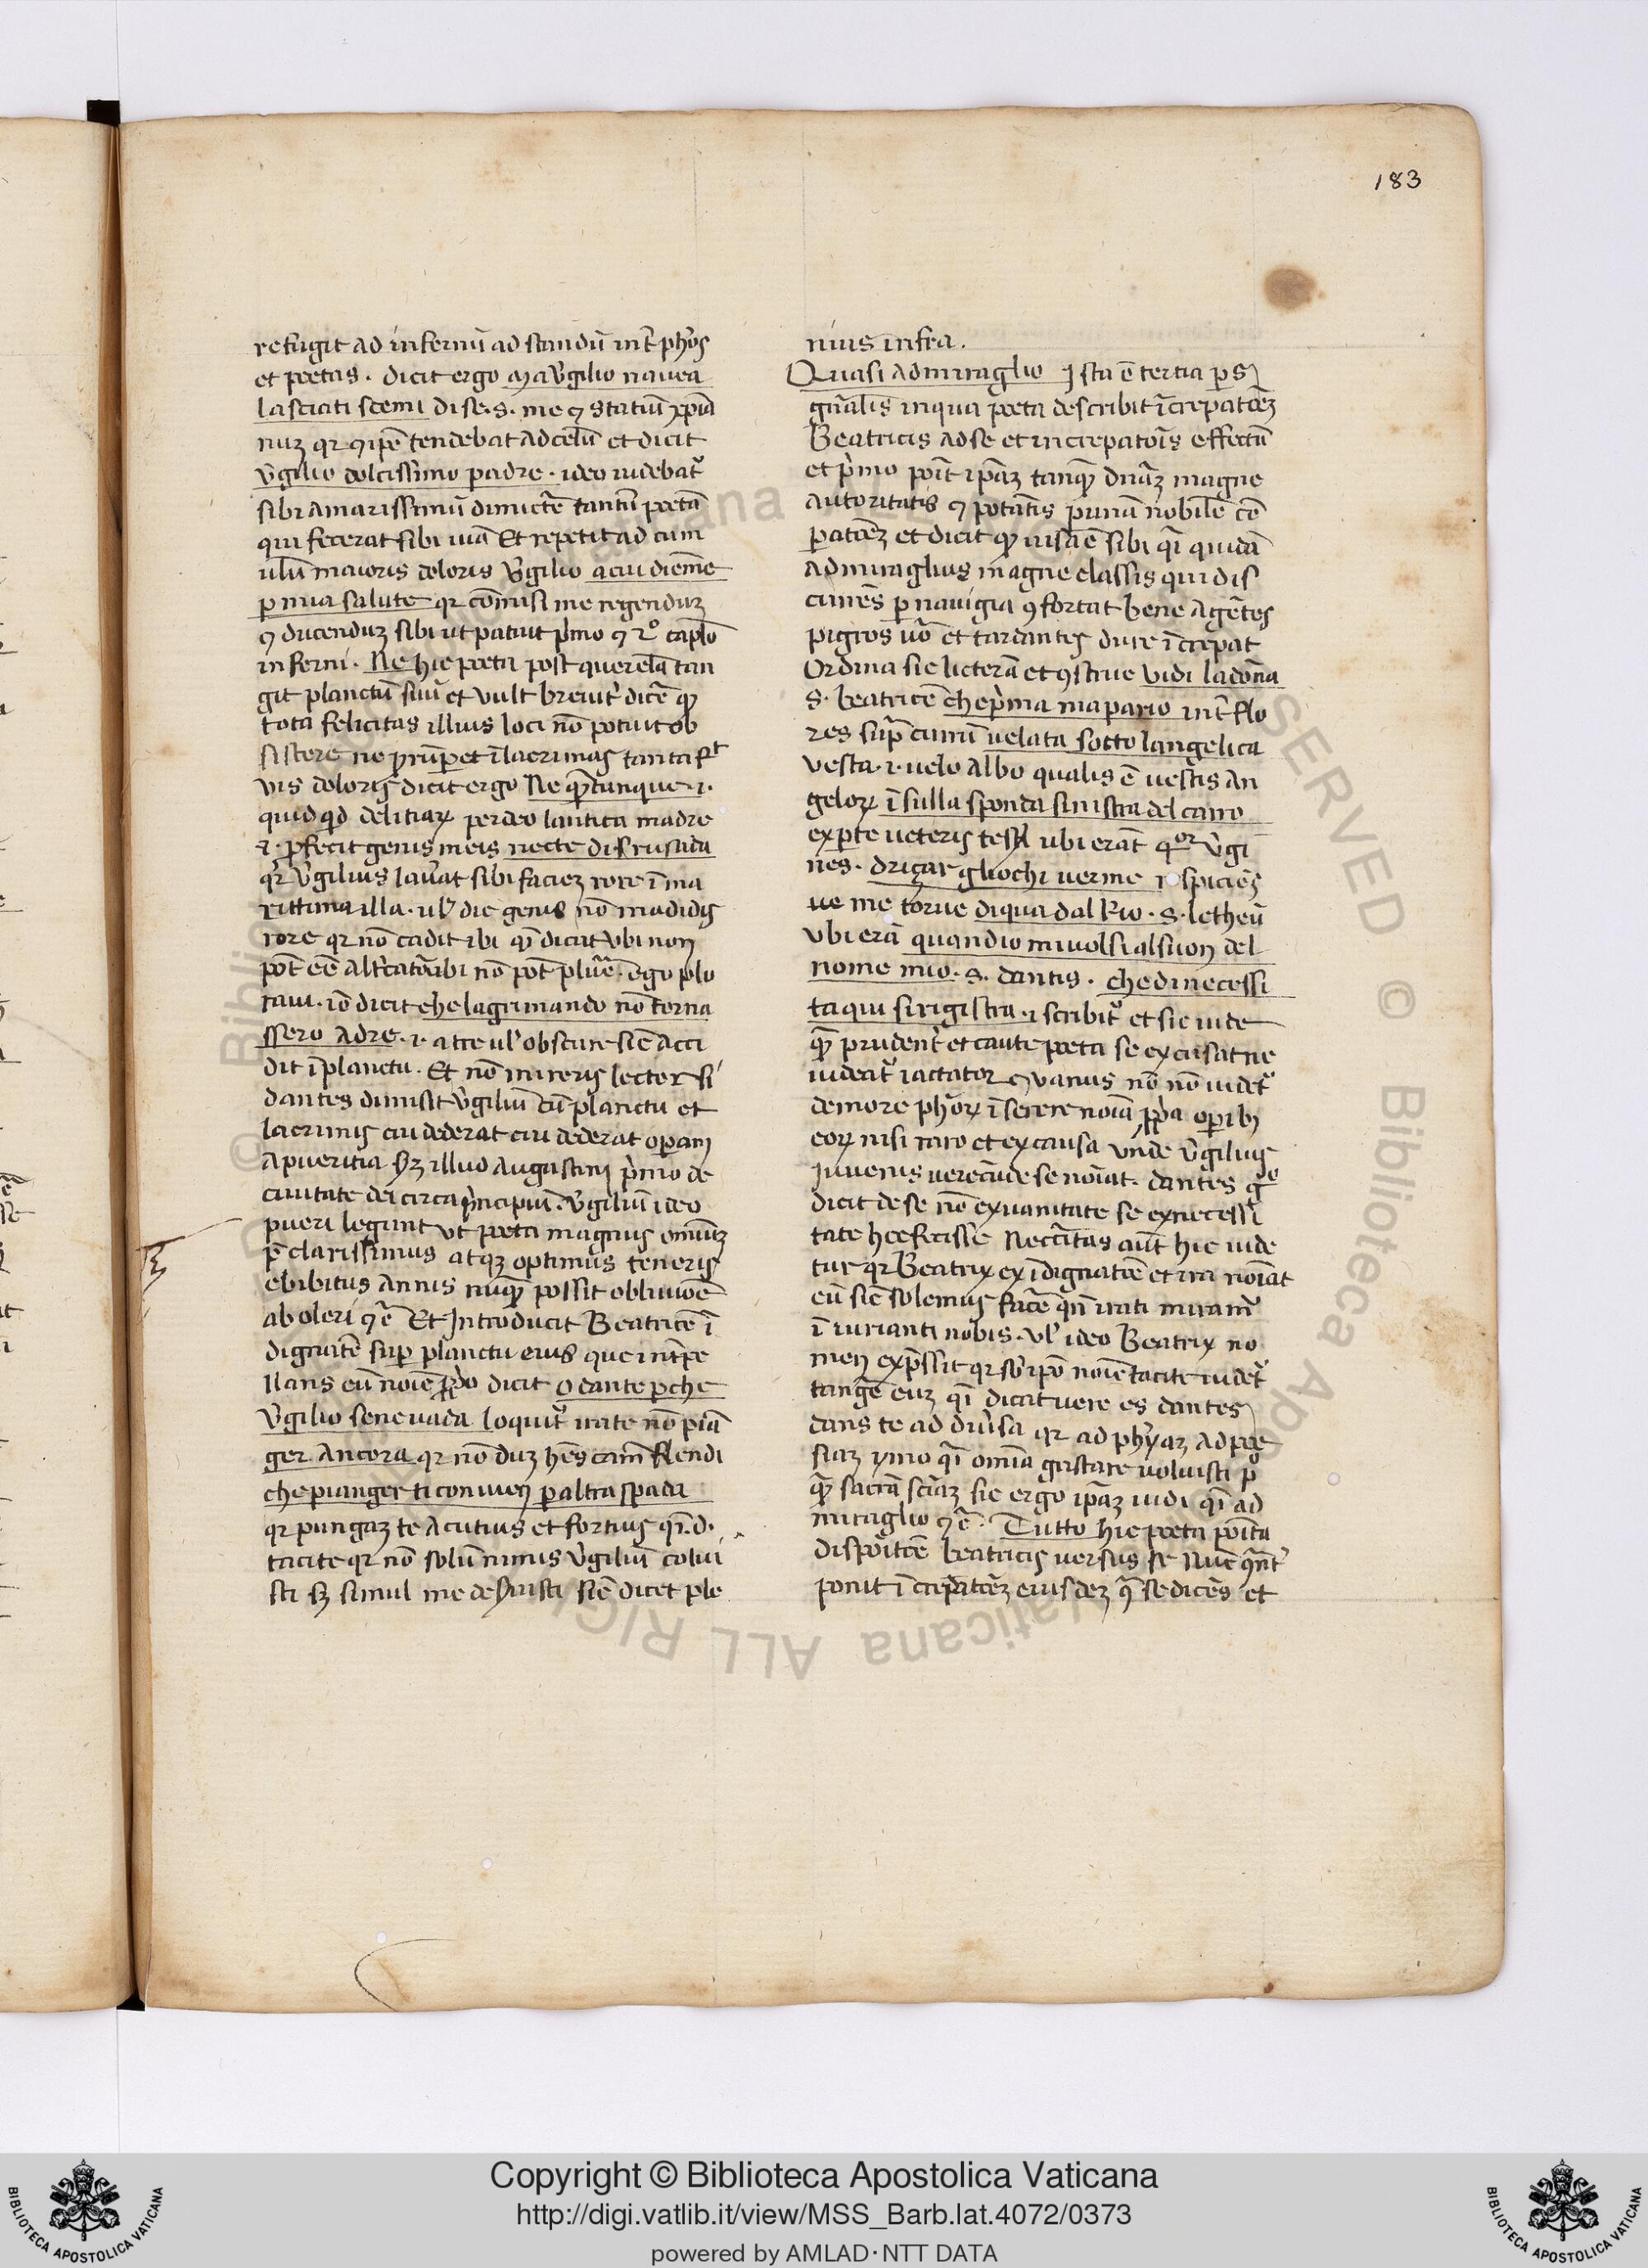 183
refugit ad infernũ ad standũ int̃ ph̃os
et poetas . dicit ergo ma v̓gilio navea
lasciati scemi dise . s . me ꝯ statiũ xp̃ia
nuz qr ꝯ ip̃e tendebat ad celũ et dicit
v̓gilio dolcissimo padre . ideo videbat᷑
sibi amarissimũ dimict̃e tantũ poetã
qui fecerat sibi viã Et repetit ad cum
ulũ maioris doloris v̓gilio a cui diemẽ
p mia salute qr cõmisi me regenduz
ꝯ ducenduz sibi ut patuit p̓mo ꝯ 2º caplõ
inferni . Ne hic poeta post querelã tan
git planctũ suũ et vult breuit̓ dic̃e ꝙ
tota felicitas illius loci nõ potuit ob
sistere ne prũpet ĩ lacrimas tanta f᷑t
vis doloris dicit ergo Ne q̃tunque .i.
quid qd delitiaꝝ perdeo lantica madre
.i. p̱fecit genis meis necte di rusada
qr̃ v̓gilius lav̓at sibi faciez rore ĩ ma
rittima illa . ul̓ dic genis nõ madidis
rore qr nõ cadit ibi q̃ dicat ubi non
pot̃ eẽ alt̓catõ ibi nõ pot̃ pluẽ . ego plo
raui . iõ dicit che lagrimando nõ torna
ssero adre .i. atre ul̓ obscure sic̃ acci
dit ĩ planctu . Et nõ mireris lector si
dantes dimisit v̓giliũ cũ planctu et
lacrimis cui dederat cui dederat operam
a pueritia Sꝫ illud Augustini p̓mo de
ciuitate dei circa p̓ncipiũ . v̓giliũ ideo
pueri legunt ut poeta magnus omniũz
p̃clarissimus atqꝫ optimus teneris
ebibitus annis nũꝙ possit obliuiõe
aboleri ꝯẽ Et Introducit Beatricẽ ĩ
dignatẽ sup planctu eius que int̃pe
llans eũ noie p̱p̱o dicit o dante p che
v̓gilio sene vada loquit᷑ irate nõ piã
ger ancora qr nõ duz hẽs cam̃ flendi
che pianger ti conuien p altra spada
qr pungaz te acutius et fortius q̃i . d .
tacite qr nõ solũ nimis v̓giliũ colui
sti sꝫ simul me deseruisti sic̃ dicet ple
nius infra .
Quasi admiraglio Ista ẽ tertia ps
gñalis inqua poeta describit ĩcrepatõez
Beatricis ad se et increpatõis effectũ
et p̓mo põit ip̃az tanꝙ dñaz magne
autoritatis ꝯ potãtis p unã nobilẽ cõ
patõez et dicit ꝙ uisa ẽ sibi q̃i quidã
admiraglius magne classis qui dis
currẽs p nauigia ꝯfortat bene agẽtes
pigros uõ et tardantes dure ĩcrepat
Ordina sic licterã et ꝯstrue vidi la dõna
s . beatricẽ che p̓ma mapario int̃ flo
res sup̃ currũ velata sotto langelica
vesta .i. uelo albo qualis ẽ uestis an
geloꝝ ĩ sulla sponda sinistra del carro
ex pte ueteris testĩ ubi erãt q̃or v̓gi
nes . driçar gliochi uerme .i. spiciẽs
ue me torue diqua dal rio . s . letheũ
ubi erã quandio mivolsi alsuon del
nome mio . s . dantis . che dinecessi
ta qui sirigistra .i. scribit᷑ et sic uide
q̃ prudent̓ et caute poeta se excusat ne
uideat᷑ iactator ꝯ vanus nõ nõ uidet᷑
demore ph̃oꝝ ĩserere noia p̱p̱a operibꝫ
eoꝝ nisi raro et ex causa unde v̓gilius
Juvenis verecũde se noiat . dantes g̊
dicit de se nõ ex vanitate se ex necessi
tate hoc fecisse Neccĩtas aũt hic uide
tur qr Beatrix ex ĩdignatiõe et ira noiãt
eũ sic̃ solemus fac̃e qñ irati miram᷑
ĩiurianti nobis . Ul̓ ideo Beatrix no
men exp̃ssit qr sb̓ ip̃o noie tacite uidet᷑
tang̃e euz q̃i dicat uere es dantes
dans te ad diu̓sa qr ad phỹaz ad poe
siaz ymo q̃i omia gustare uoluisti p̱
q̃ sacrã sciaz sic ergo ip̃az uidi q̃i ad
miraglio ꝯẽ . Tutto hic poeta põita
dispõitõe beatricis versus se Nũc q̃nt̓
ponit ĩcrepatõez eiusdez q̃ se dicẽs et
Copyright © Biblioteca Apostolica Vaticana
http://digi.vatlib.it/view/MSS_Barb.lat.4072/0373
powered by AMLAD · NTT DATA
BIBLIOTECA APOSTOLICA VATICANA
BIBLIOTECA APOSTOLICA VATICANA